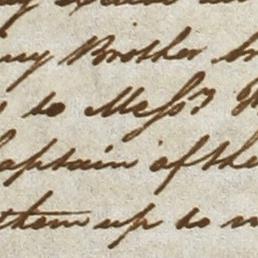 my Brother
to Messrs
Captain of the
them up to